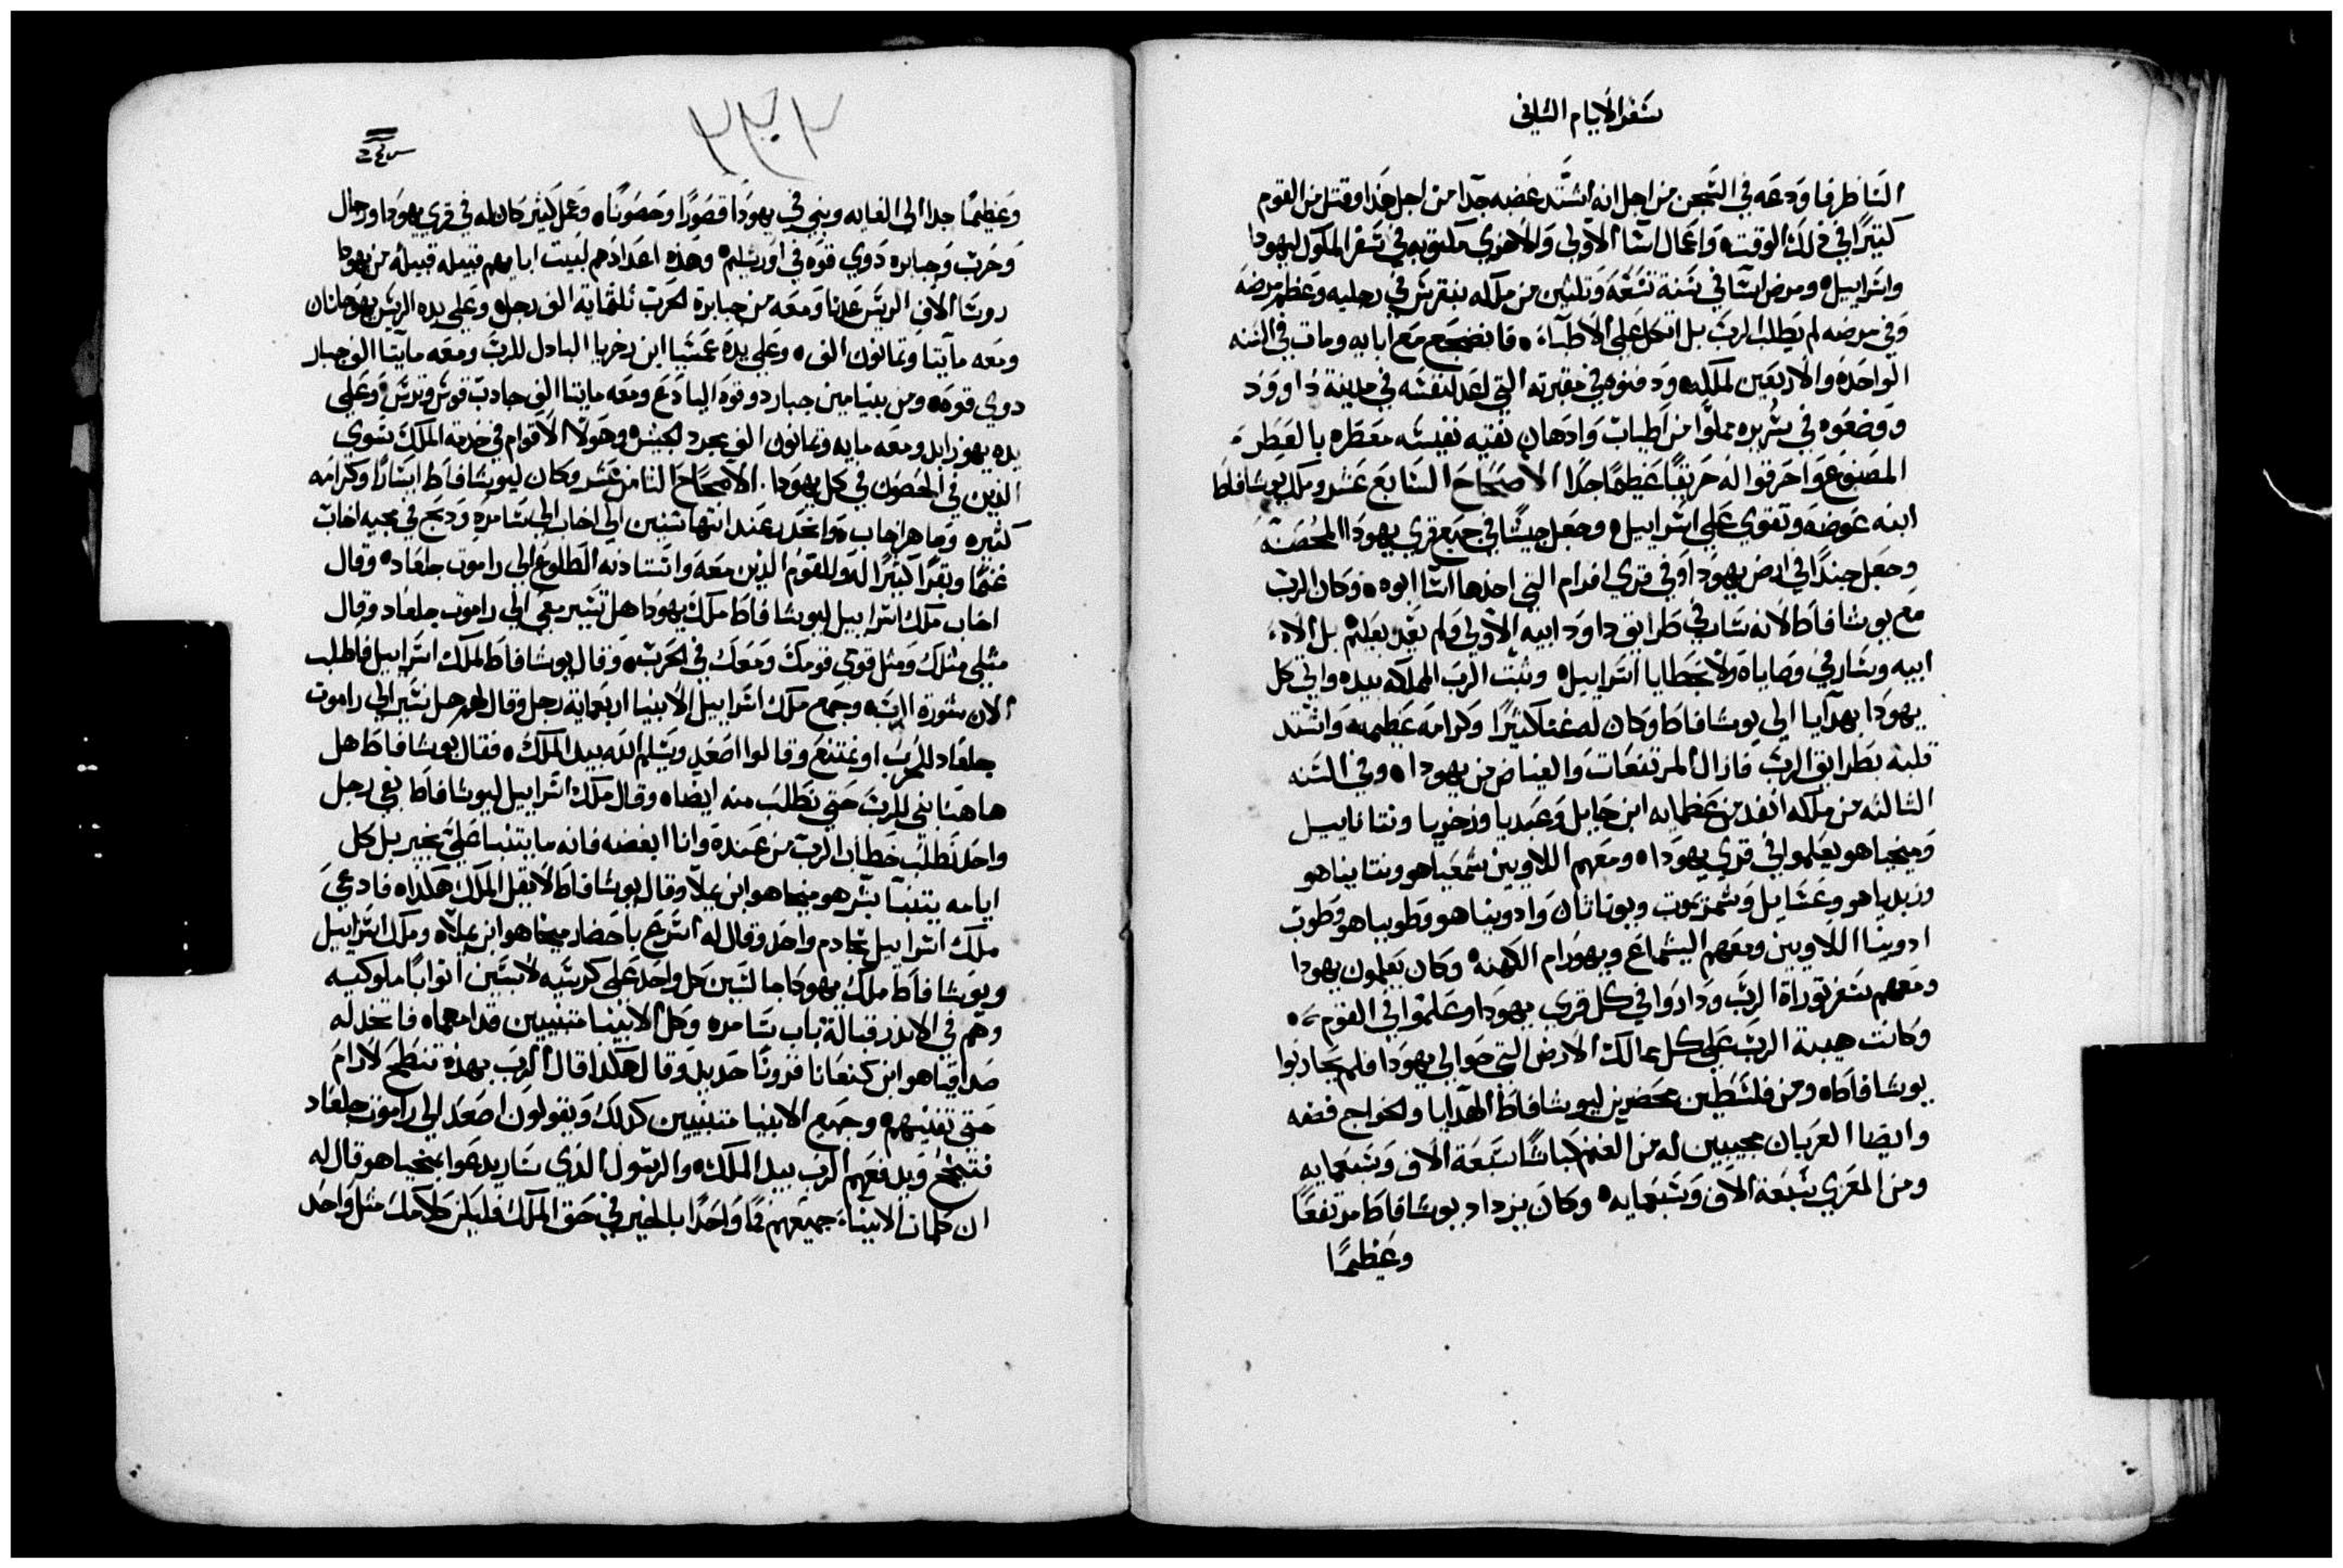 سفر الايام الثاني
الناظر فاودعه في السجن من اجل انه اشتد غضبه جدا من اجل هذا وقتل من القوم
كثيرًا في ذلك الوقت، واعمال اسا الاولي والاخري مكتوبه في سفر الملوك ليهودا
واسراييل ومرض اسا في سنة تسعه وتلثين من ملكه بنقرس في رجليه وعظم مرضه
وفي مرضه لم يطلب الرب بل اتكل على الاطباء، فانضجع مع ابايه ومات في السنه
الواحده والاربعين لملكه ودفنوه في مقبرته التي اعد لنفسه في مدينة داوود
ووضعوه في سريره مملوًا من اطياب وادهان نقيه نفيسه معطره بالعطر
المصنوع واحرقوا له حريقًا عظيمًا جدًا الاصحاح السابع عشر وملك يوشافاط
ابنه عوضه وتقوي على اسراييل وجعل جيشًا في جميع قري يهودا المحصنه
وجعل جندًا في ارض يهودا وفي قري افرام التي اخذها اسا ابوه وكان الرب
مع يوشافاط لانه سار في طرايق داود ابيه الاولي ولم يقد بعليم بل الاه
ابيه وسار في وصاياه ولا بخطايا اسراييل وثبت الرب المملكه بيده واتي كل
يهودا بهدايا الي يوشافاط وكان له غنا كثيرًا وكرامه عظيمه واشتد
قلبه بطرايق الرب فازال المرتفعات والغياض من يهودا وفي السنه
الثالثه من ملكه انفد من عظمايه ابن حايل وعبديا وزخريا ونتناييل
وميخياهو يعلموا في قري يهودا ومعهم اللاويين شمعياهو ونتنياهو
وزبدياهو وعسايل وشمريموت ويوناثان وادونياهو وطوبياهو وطوب
ادونيا اللاويين ومعهم اليشماع ويهورام الكهنه وكان يعلمون يهودا
ومعهم سفر توراة الرب وداروا في كل قري يهودا وعلموا في القوم
وكانت هيبة الرب على كل ممالك الارض التي حوالي يهودا فلم يحاربوا
يوشافاط ومن فلسطين محضرين ليوشافاط الهدايا والخراج فضه
وايضا العربان مجيبين له من الغنم كباشًا سبعة الاف وسبعمايه
ومن المعزي سبعة الاف وسبعمايه وكان يزداد يوشافاط مرتفعًا
وعظيمًا
٣٣٢
وعظيمًا جدا الي الغايه وبني في يهودا قصورًا وحصونًا وعمل كثير كان له في قري يهودا ورجال
وحرب وجبابره ذوي قوه في اورشليم وهذه اعدادهم لبيت ابايهم قبيله قبيله من يهودا
روسا الاف الريس عدنا ومعه من جبابرة الحرب ثلثماية الف رجل وعلى يده الريس يهوحانان
ومعه مايتا وثمانون الف وعلى يده عمسيا ابن زخريا البادل للرب ومعه مايتا الف جبار
ذوي قوه ومن بنيامين جبار ذو قوة اليادع ومعه مايتا الف جادب قوس وترس وعلى
يده يهوزابد ومعه مايه وثمانون الف مجرد لجيش هولا الاقوام في خدمة الملك سوي
الذين في الحصون في كل يهودا. الاصحاح الثامن عشر وكان ليوشافاط ايسارًا وكرامه
كثيره وصاهر اخاب وانحدر عند انتها سنين الي اخاب الي سامره ودبح في مجيه اخاب
غنمًا وبقرًا كثيرًا له وللقوم الذين معه واستادنه الطلوع الي راموت جلعاد وقال
اخاب ملك اسراييل ليوشافاط ملك يهودا هل تسير معي الي راموت جلعاد وقال
مثلي مثلك ومثل قومي قومك ومعك في الحرب وقال يوشافاط لملك اسراييل فاطلب
الان مشورة الرب وجمع ملك اسراييل الانبيا اربعماية رجل وقال لهم هل نسير الي راموت
جلعاد للحرب او نمتنع وقالوا اصعد ويسلم الله بيد الملك فقال يوشافاط هل
هاهنا نبي للرب حتي نطلب منه ايضا وقال ملك اسراييل ليوشافاط بقي رجل
واحد نطلب خطاب الرب من عنده وانا ابغضه فانه ما يتنبا علي بخير بل كل
ايامه يتنبا بشر هو ميخاهو ابن يملا وقال يوشافاط لا يقل الملك هكذا فادعي
ملك اسراييل بخادم واحد وقال له اسرع باحضار ميخاهو ابن يملا وملك اسراييل
ويوشافاط ملك يهودا جالسين كل واحد على كرسيه لابسين اثوابًا ملوكيه
وهم في الاندر قبالة باب سامره وكل الانبيا متنبيين قدامهما فاتخد له
صداقياهو ابن كنعانا قرونًا حديد وقال هكذا قال الرب بهذه تنطح لارام
حتي تفنيهم وجميع الانبيا متنبيين كذلك ويقولون اصعد الي راموت جلعاد
فتنجح ويدفعهم الرب بيد الملك والرسول الذي سار يدعوا بميخياهو قال له
ان كلمات الانبياء جميعهم فمًا واحدًا بالخير في حق الملك فليكن كلامك مثل واحد